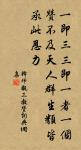 一即三三即一者一個
贊不及天人群生類皆
承此恩力
三教贊